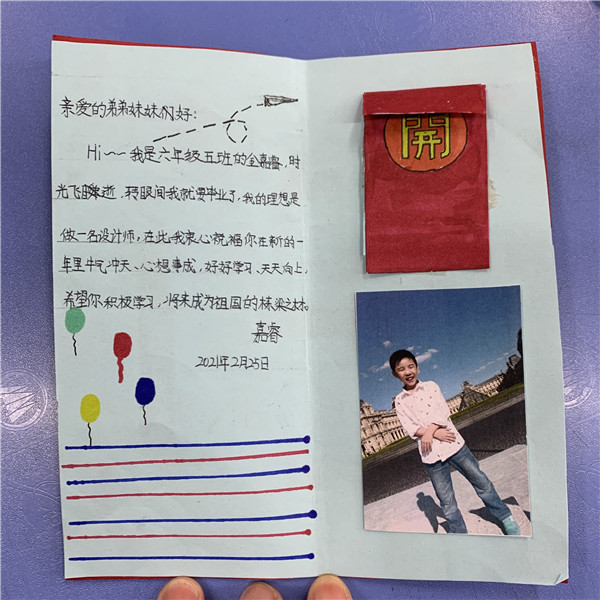 亲爱的弟弟妹妹们好：
Hi～～我是六年级五班的金嘉睿，时
光飞逝，转眼间我就要毕业了，我的理想是
做一名设计师，在此我衷心祝福你在新的一
年里牛气冲天、心想事成，好好学习、天天向上，
希望你积极学习，将来成为祖国的栋梁之材。
嘉睿
2021年2月25日
開